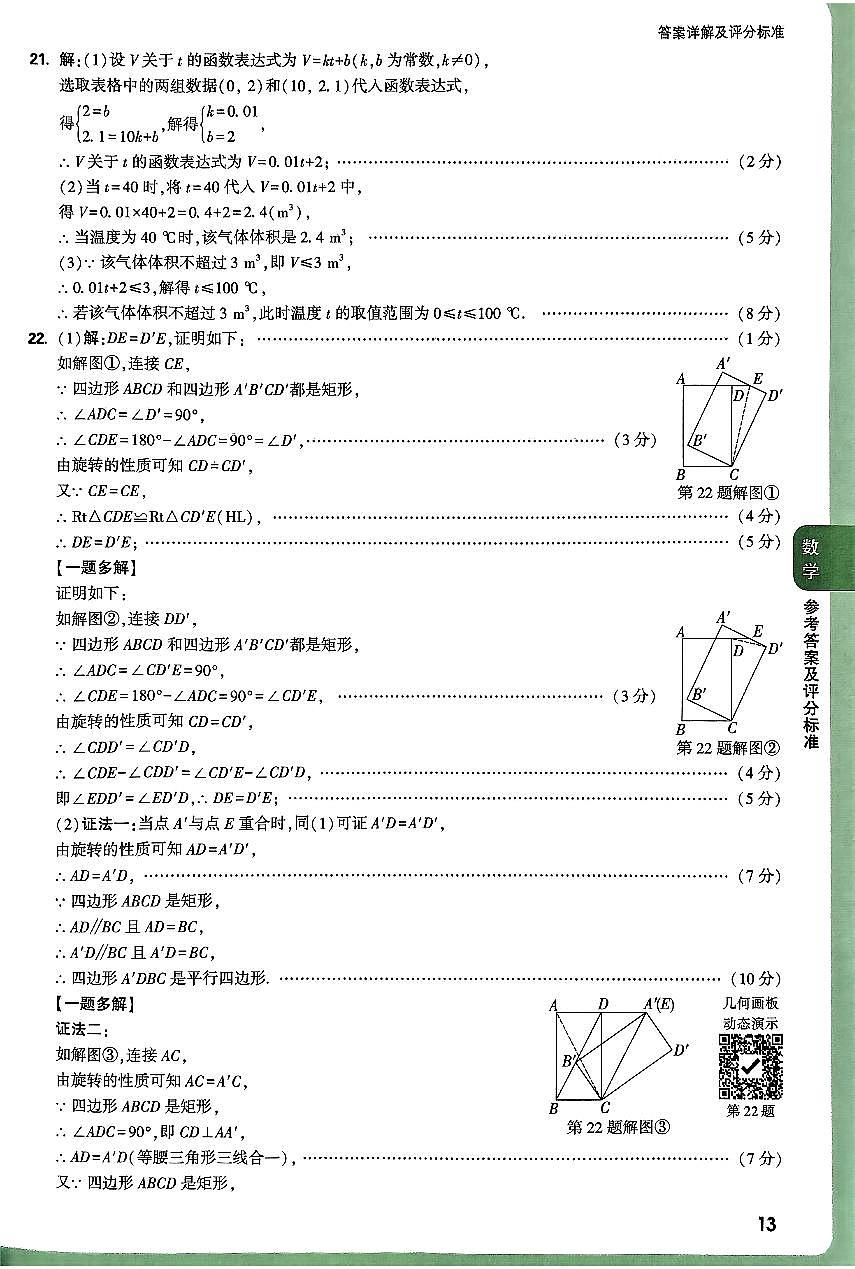 答案详解及评分标准
21. 解:(1)设 V 关于 t 的函数表达式为 V=kt+b(k,b 为常数,k≠0),
选取表格中的两组数据(0, 2)和(10, 2.1)代入函数表达式,
得{2=b
2.1=10k+b,解得{k=0.01
b=2,
∴ V 关于 t 的函数表达式为 V=0.01t+2; …… (2分)
(2)当 t=40 时,将 t=40 代入 V=0.01t+2 中,
得 V=0.01×40+2=0.4+2=2.4(m³),
∴ 当温度为 40 ℃时,该气体体积是 2.4 m³; …… (5分)
(3)∵ 该气体体积不超过 3 m³,即 V≤3 m³,
∴ 0.01t+2≤3,解得 t≤100 ℃,
∴ 若该气体体积不超过 3 m³,此时温度 t 的取值范围为 0≤t≤100 ℃. …… (8分)
22. (1)解:DE=D′E,证明如下: …… (1分)
如解图①,连接 CE,
∵ 四边形 ABCD 和四边形 A′B′CD′都是矩形,
∴ ∠ADC=∠D′=90°,
∴ ∠CDE=180°-∠ADC=90°=∠D′, …… (3分)
由旋转的性质可知 CD=CD′,
又∵ CE=CE,
∴ Rt△CDE≌Rt△CD′E(HL), …… (4分)
∴ DE=D′E; …… (5分)
A′
A
E
D
D′
B′
B
C
第 22 题解图①
【一题多解】
证明如下:
如解图②,连接 DD′,
∵ 四边形 ABCD 和四边形 A′B′CD′都是矩形,
∴ ∠ADC=∠CD′E=90°,
∴ ∠CDE=180°-∠ADC=90°=∠CD′E, …… (3分)
由旋转的性质可知 CD=CD′,
∴ ∠CDD′=∠CD′D,
∴ ∠CDE-∠CDD′=∠CD′E-∠CD′D, …… (4分)
即∠EDD′=∠ED′D,∴ DE=D′E; …… (5分)
A′
A
E
D
D′
B′
B
C
第 22 题解图②
(2)证法一:当点 A′与点 E 重合时,同(1)可证 A′D=A′D′,
由旋转的性质可知 AD=A′D′,
∴ AD=A′D, …… (7分)
∵ 四边形 ABCD 是矩形,
∴ AD∥BC 且 AD=BC,
∴ A′D∥BC 且 A′D=BC,
∴ 四边形 A′DBC 是平行四边形. …… (10分)
【一题多解】
证法二:
如解图③,连接 AC,
由旋转的性质可知 AC=A′C,
∵ 四边形 ABCD 是矩形,
∴ ∠ADC=90°,即 CD⊥AA′,
∴ AD=A′D(等腰三角形三线合一), …… (7分)
又∵ 四边形 ABCD 是矩形,
A
D
A′(E)
B′
D′
B
C
第 22 题解图③
几何画板
动态演示
第 22 题
数学
参考答案及评分标准
13